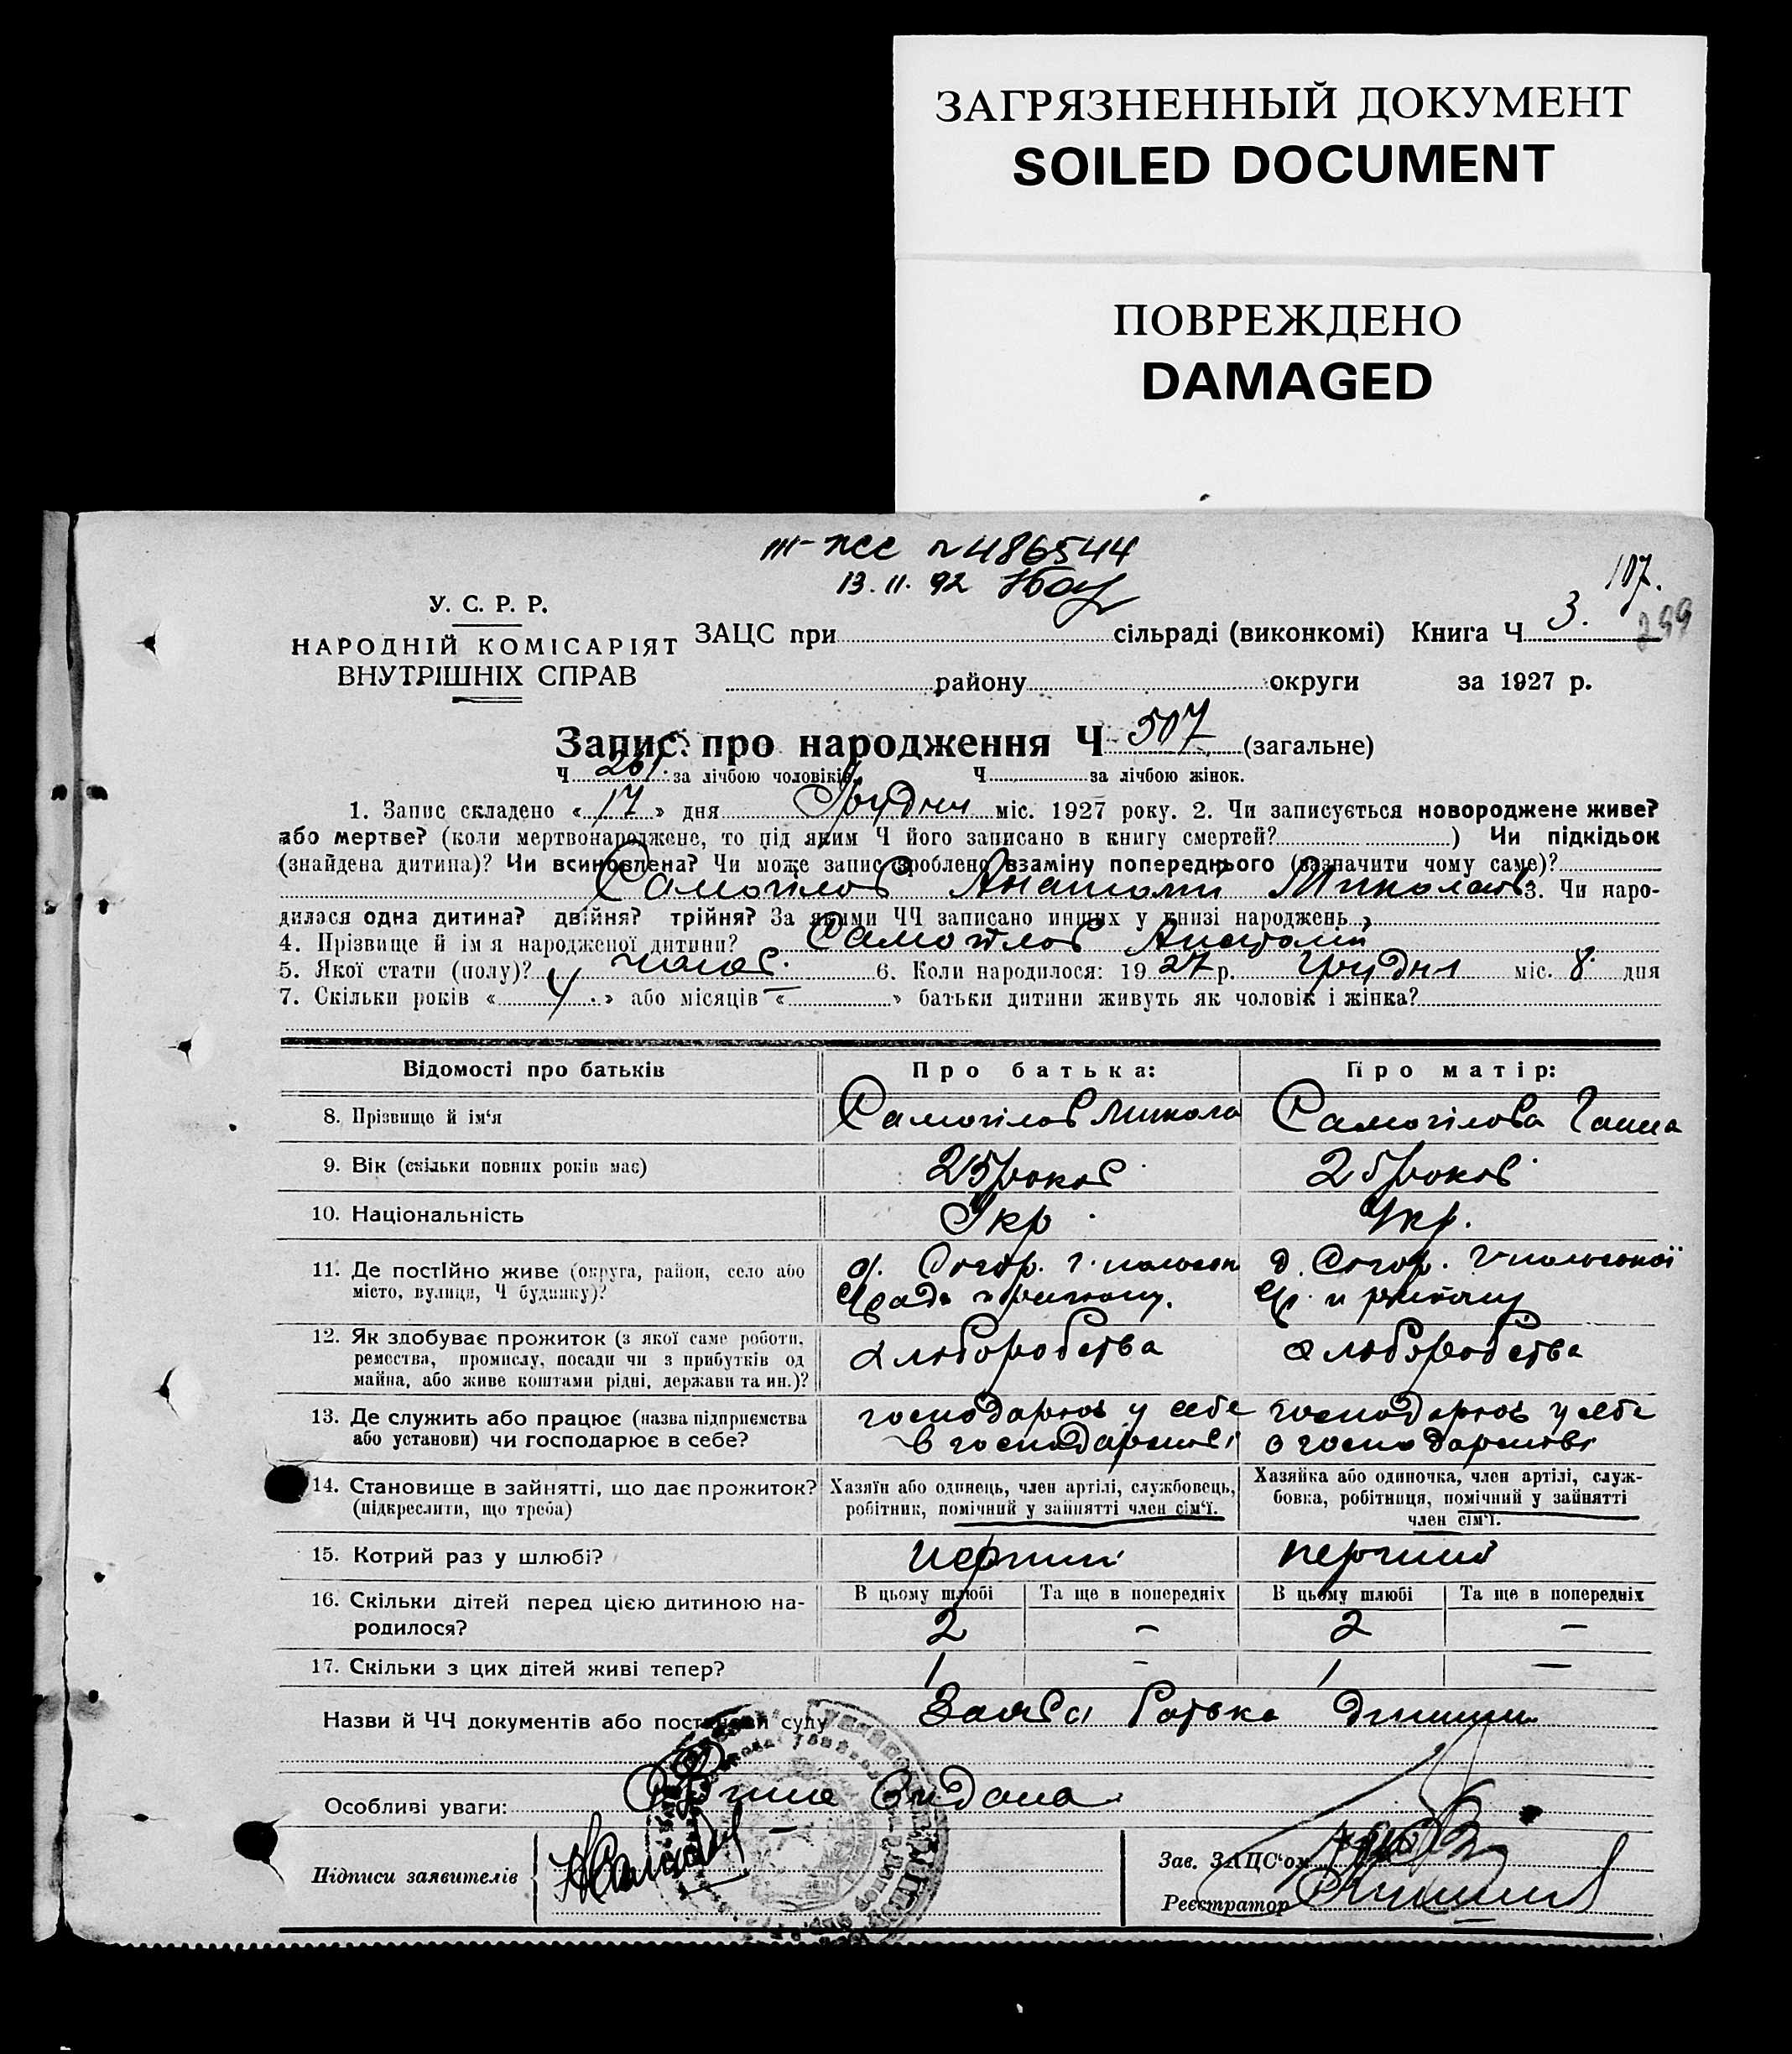 ЗАГРЯЗНЕННЫЙ ДОКУМЕНТ
SOILED DOCUMENT
ПОВРЕЖДЕНО
DAMAGED
№ 486544
13.11.92
107.
299
У. С. Р. Р.
НАРОДНІЙ КОМІСАРІЯТ
ВНУТРІШНІХ СПРАВ
ЗАЦС при сільраді (виконкомі) Книга Ч 3.
району округи за 1927 р.
Запис про народження Ч 507 (загальне)
Ч 261. за лічбою чоловіків. Ч за лічбою жінок.
1. Запис складено « 17 » дня Грудня міс. 1927 року. 2. Чи записується новороджене живе?
або мертве? (коли мертвонароджене, то під яким Ч його записано в книгу смертей? ) Чи підкідьок
(знайдена дитина)? Чи всиновлена? Чи може запис зроблено взаміну попереднього (зазначити чому саме)?
Самогілов Анатолий Миколаєв. 3. Чи наро-
дилася одна дитина? двійня? трійня? За якими ЧЧ записано инших у книзі народжень
4. Прізвище й ім'я народженої дитини? Самогілов Анатолій
5. Якої стати (полу)? чолов. 6. Коли народилося: 1927 р. грудня міс. 8 дня
7. Скільки років « 4 » або місяців « — » батьки дитини живуть як чоловік і жінка?
Відомості про батьків Про батька: Про матір:
8. Прізвище й ім‘я Самогілов Микола Самогілова Ганна
9. Вік (скільки повних років має) 25 років 25 років
10. Національність Укр Укр.
11. Де постійно живе (округа, район, село або
місто, вулиця, Ч будинку)?
12. Як здобуває прожиток (з якої саме роботи,
ремества, промислу, посади чи з прибутків од
майна, або живе коштами рідні, держави та ин.)?
хлюборобства хлюборобства
13. Де служить або працює (назва підприємства
або установи) чи господарює в себе?
господарює у себе господарює у себе
в господарстві в господарстві
14. Становище в зайнятті, що дає прожиток?
(підкреслити, що треба)
Хазяїн або одинець, член артілі, службовець,
робітник, помічний у зайнятті член сім‘ї.
Хазяйка або одиночка, член артілі, служ-
бовка, робітниця, помічний у зайнятті
член сім‘ї.
15. Котрий раз у шлюбі? перший перший
16. Скільки дітей перед цією дитиною на-
родилося?
В цьому шлюбі Та ще в попередніх В цьому шлюбі Та ще в попередніх
2 – 2 –
17. Скільки з цих дітей живі тепер? 1 – 1 —
Назви й ЧЧ документів або постанови суду Заява батька дитини
Особливі уваги: видана
Підписи заявителів
Зав. ЗАЦС‘ом
Реєстратор